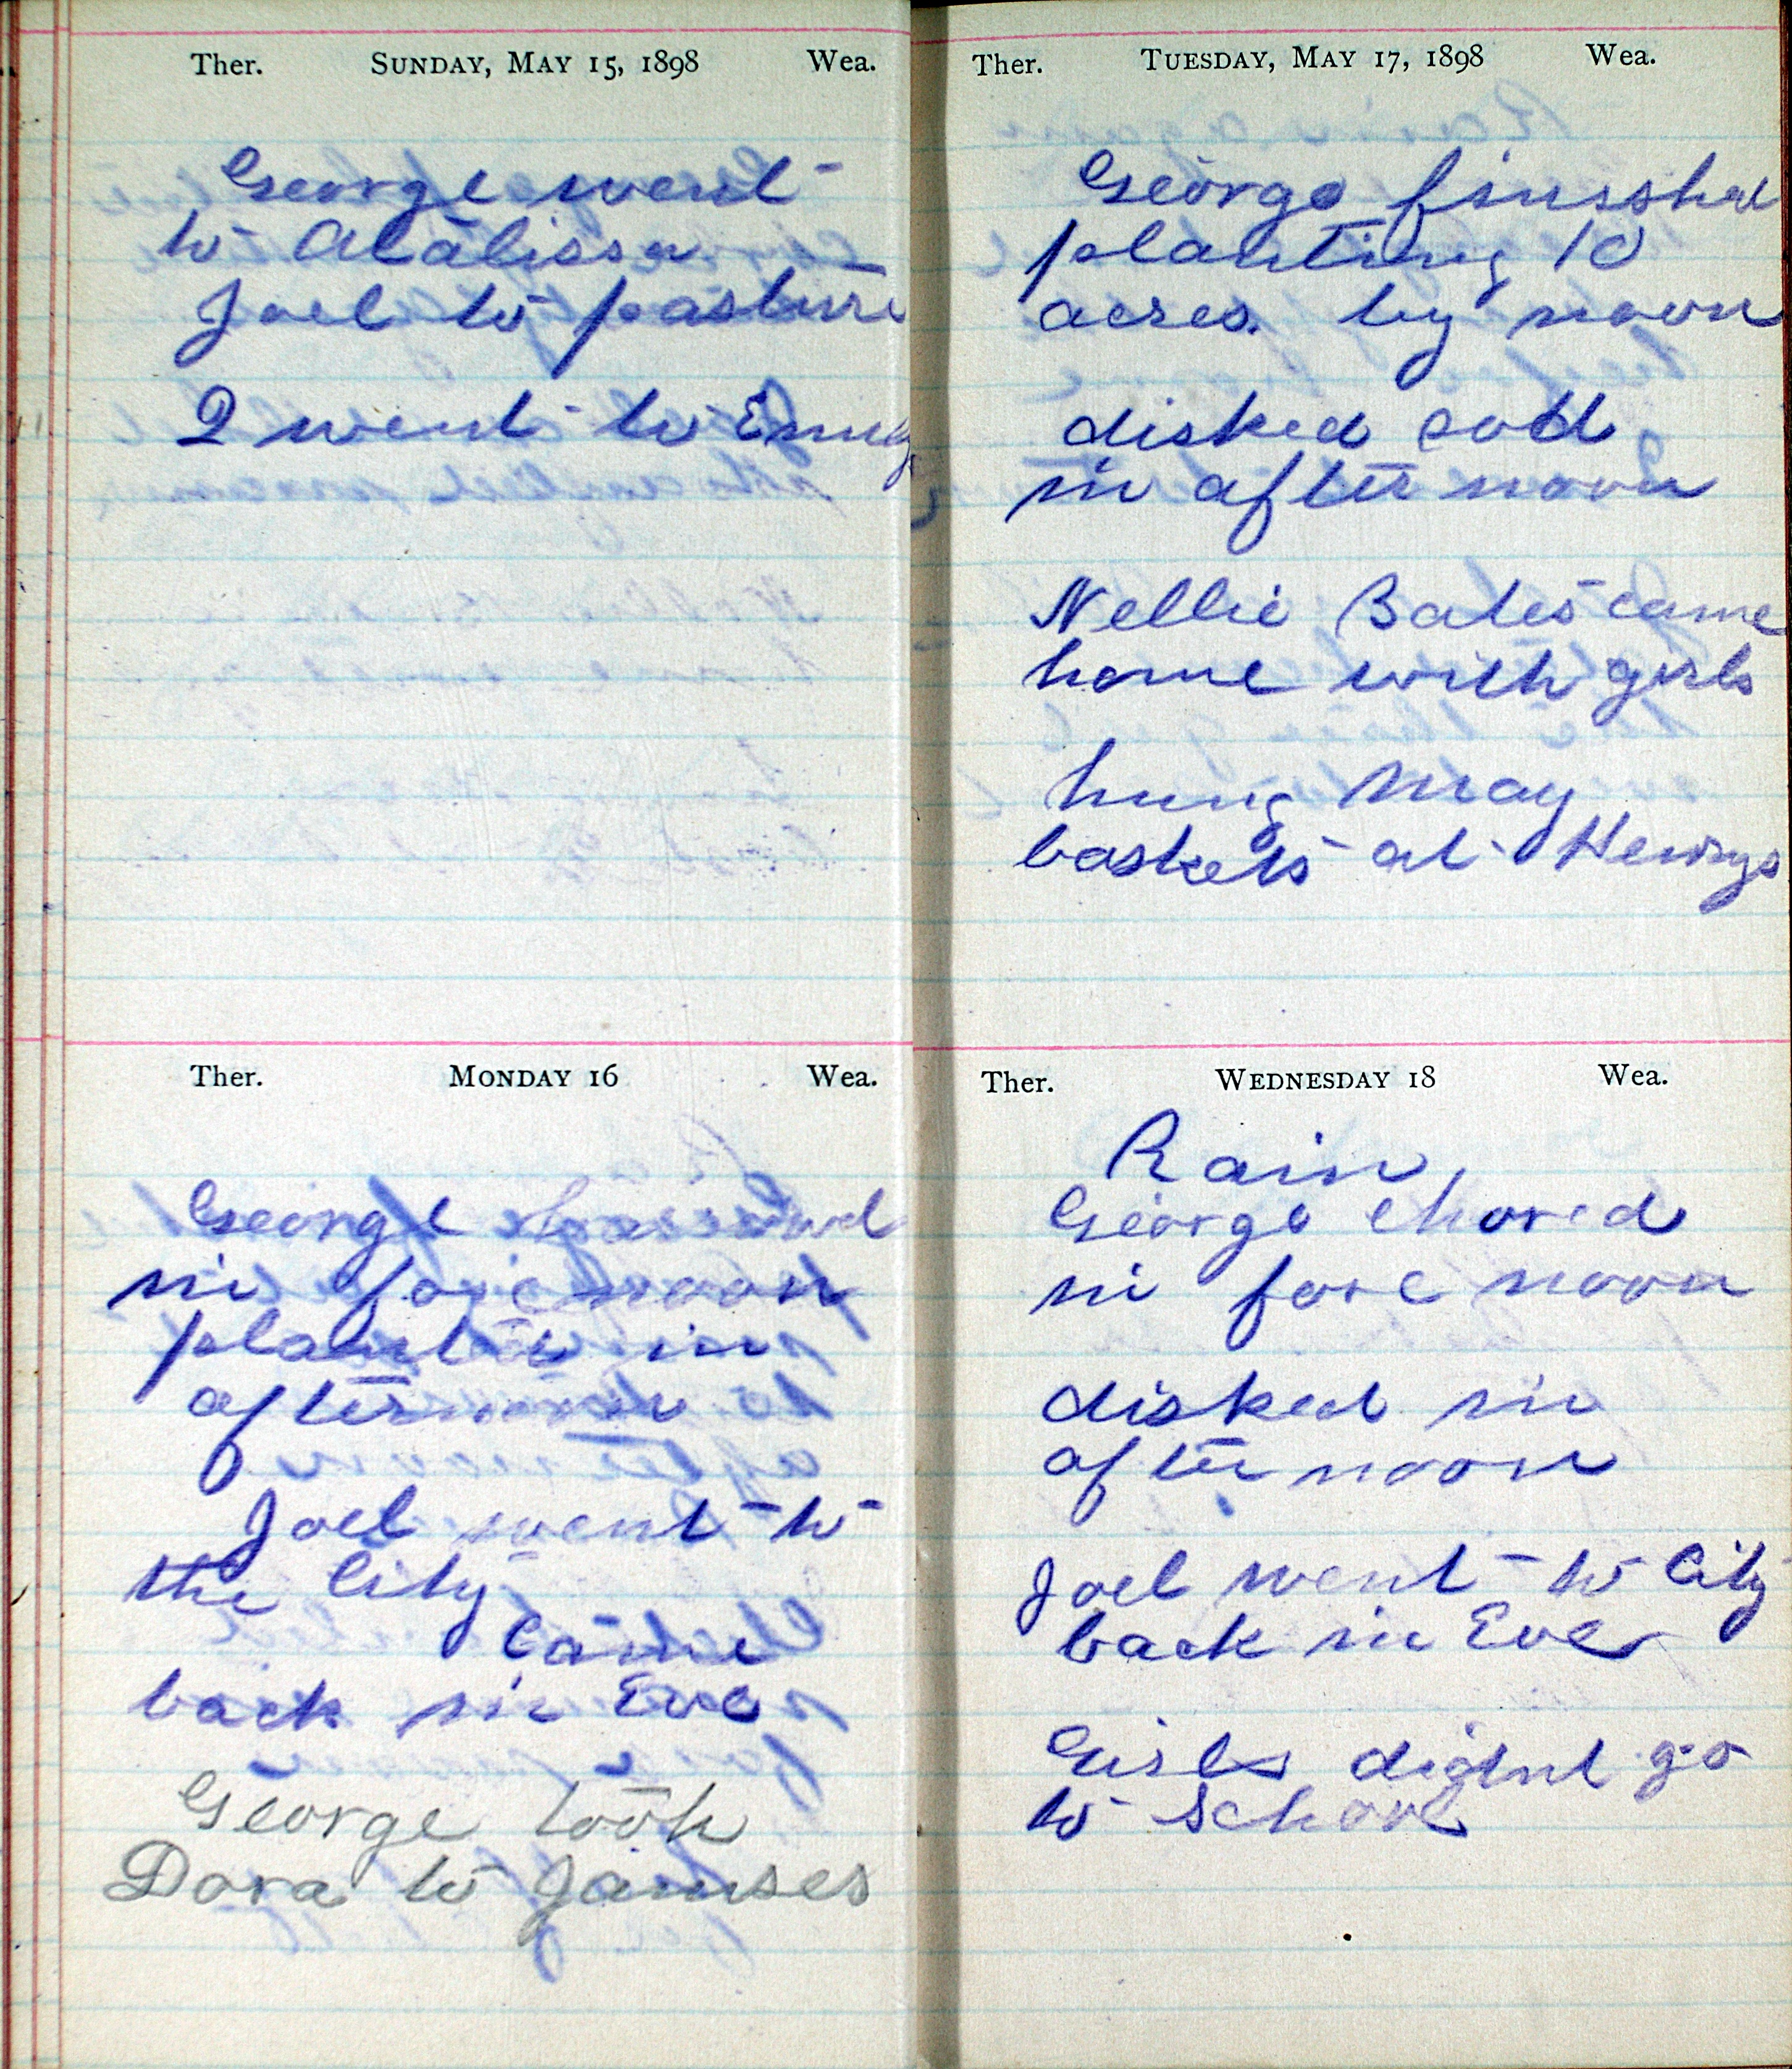 Ther. SUNDAY, MAY 15, 1898 Wea.
George went
to Atalissa
Joel to pasture
I went to Emily
Ther. MONDAY 16 Wea.
George
in fore noon
planted in
afternoon
Joel went to
the City
Came
back in Eve
George took
Dora to Jamses
Ther. TUESDAY, MAY 17, 1898 Wea.
George finisshed
planting 10
acres. by noon
disked sod
in after noon
Nellie Bates came
home with girls
hung May
baskets at Henrys
Ther. WEDNESDAY 18 Wea.
Rain,
George chored
in fore noon
disked in
after noon
Joel went to City
back in Eve
Girls didnt go
to School